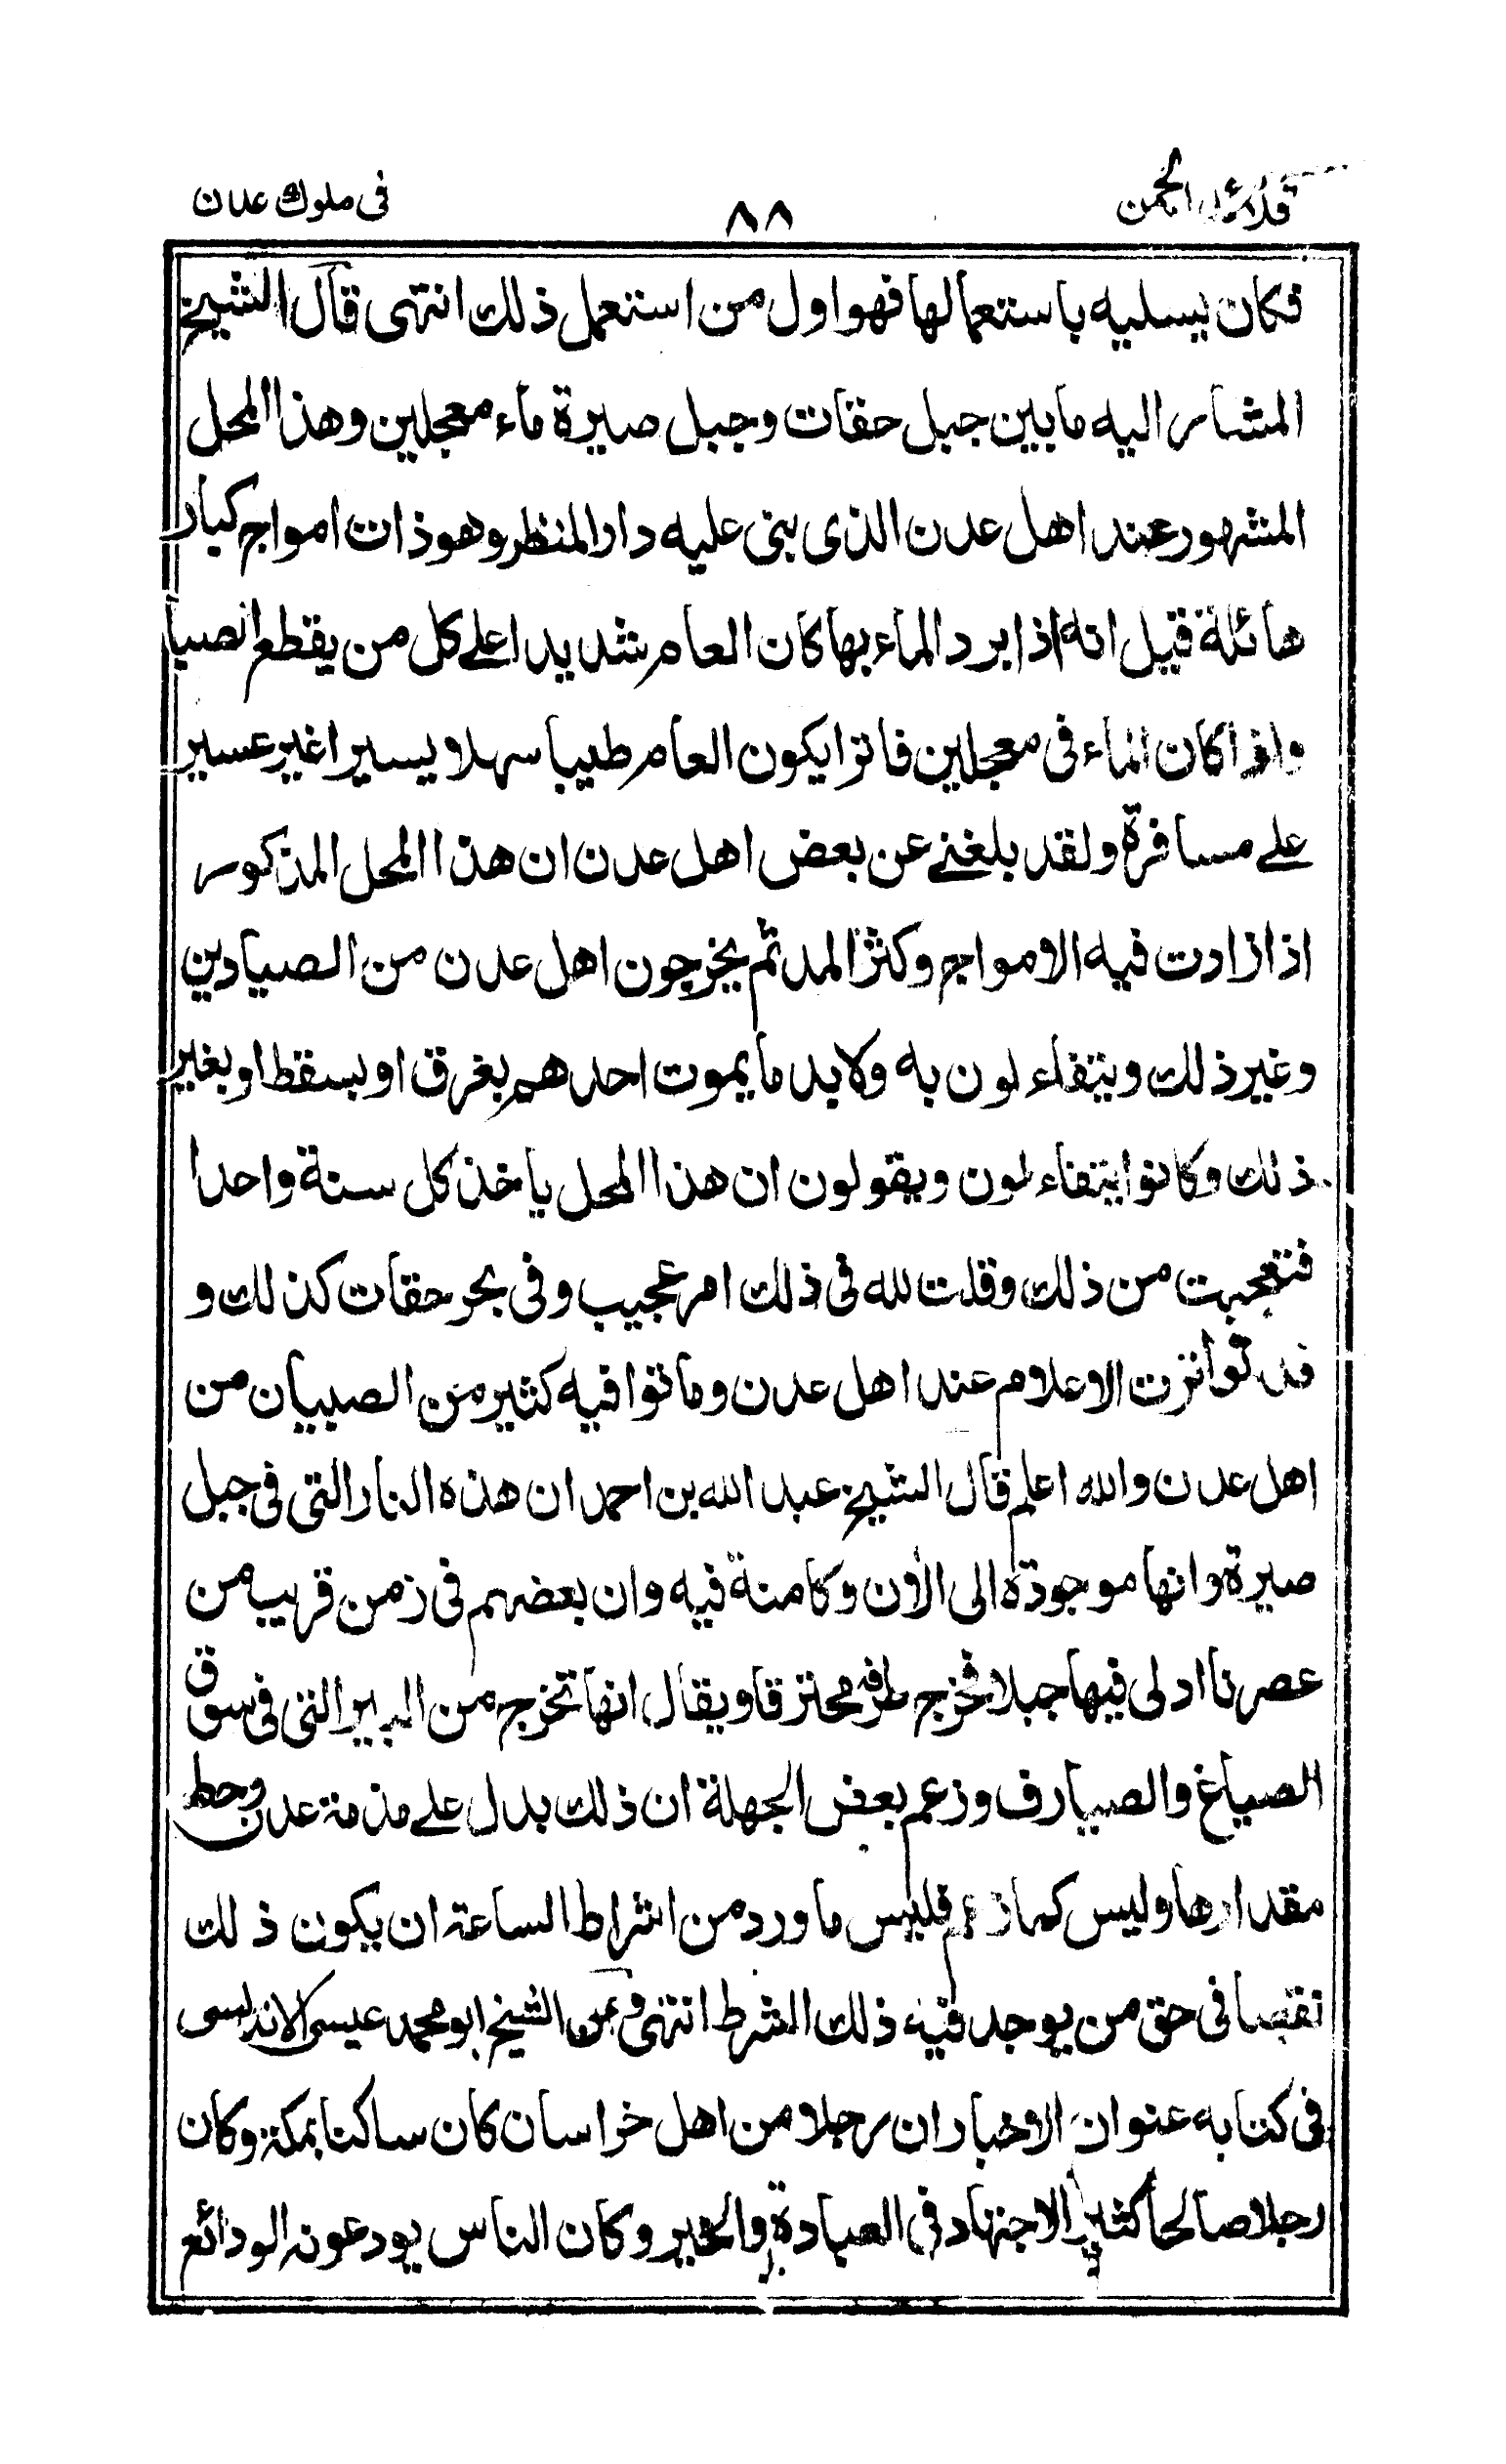 قلائد الجمن
٨٨
فى ملوك عدن
فكان يسليه باستعمالها فهو اول من استعمل ذلك انتهى قال الشيخ
المشار اليه مابين جبل حقات وجبل صيرة ماء معجلين وهذا المحل
المشهور عند اهل عدن الذى بنى عليه دار المنظر وهو ذات امواج كبار
هائلة قيل انه اذا برد الماء بها كان العام شديدا على كل من يقطع الصبا
واذا كان الماء فى معجلين فاترا يكون العام طيبا سهلا يسيرا غير عسير
على مسافرة ولقد بلغنى عن بعض اهل عدن ان هذا المحل المذكور
اذا زادت فيه الامواج وكثر المد ثم يخرجون اهل عدن من الصيادين
وغير ذلك ويتفاءلون به ولابد ما يموت احدهم بغرق او بسقط او بغير
ذلك وكانوا يتفاءلون ويقولون ان هذا المحل ياخذ كل سنة واحدا
فتعجبت من ذلك وقلت لله فى ذلك امر عجيب وفى بحر حقات كذلك و
قد تواترت الاعلام عند اهل عدن وماتوا فيه كثير من الصبيان من
اهل عدن والله اعلم قال الشيخ عبد الله بن احمد ان هذه النار التى فى جبل
صيرة وانها موجودة الى الأن وكامنة فيه وان بعضهم فى زمن قريب من
عصرنا ادلى فيها حبلا فخرج طرفه محترقا ويقال انها تخرج من البير التى فى سوق
الصياغ والصيارف وزعم بعض الجهلة ان ذلك يدل على مذمة عدن وحط
مقدارها وليس كما زعم فليس ما ورد من اشراط الساعة ان يكون ذلك
نقصا فى حق من يوجد فيه ذلك الشرط انتهى وعن الشيخ ابو محمد عيسى الاندلسى
فى كتابه عنوان الاخبار ان رجلا من اهل خراسان كان ساكنا بمكة وكان
رجلا صالحا كثير الاجتهاد فى العبادة والخير وكان الناس يودعونه الودائع